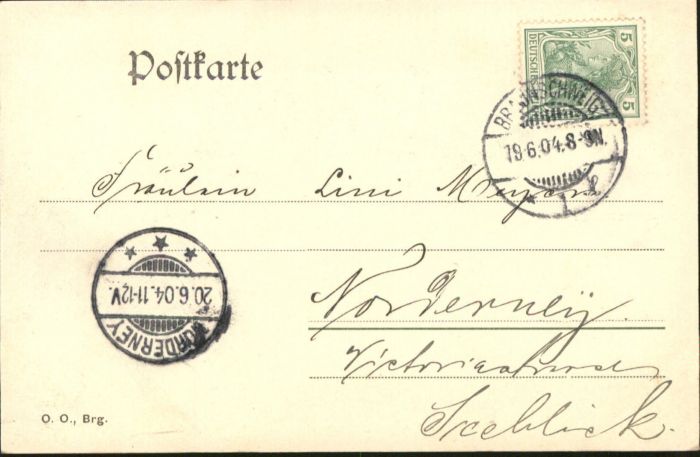 Postkarte
5 DEUTSCHES 5
BRAUNSCHWEIG
19.6.04.8-9N.
* 1 *
Fräulein Lini Meyer
Norderney.
Victoriastrasse
Seeblick.
20.6.04.11-12V.
NORDERNEY
O. O., Brg.